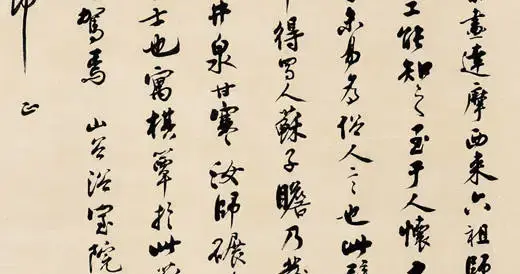 畫達摩西來六祖師
工能知之至于人懷
未易為俗人言也此
得蜀人蘇子瞻乃
井泉甘寒汝師碾
士也寓棋簟於此
駕焉 山谷浴室院
正